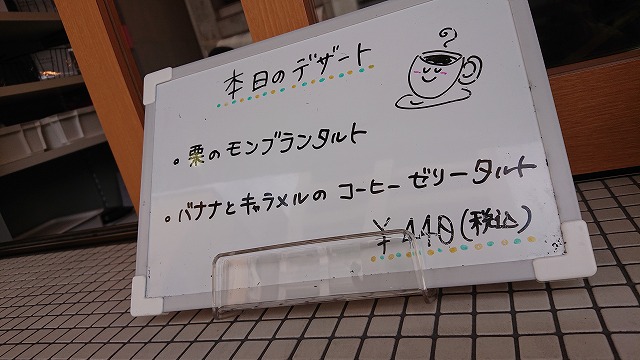 本日のデザート
。栗のモンブランタルト
。バナナとキャラメルの コーヒーゼリータルト
¥440(税込)